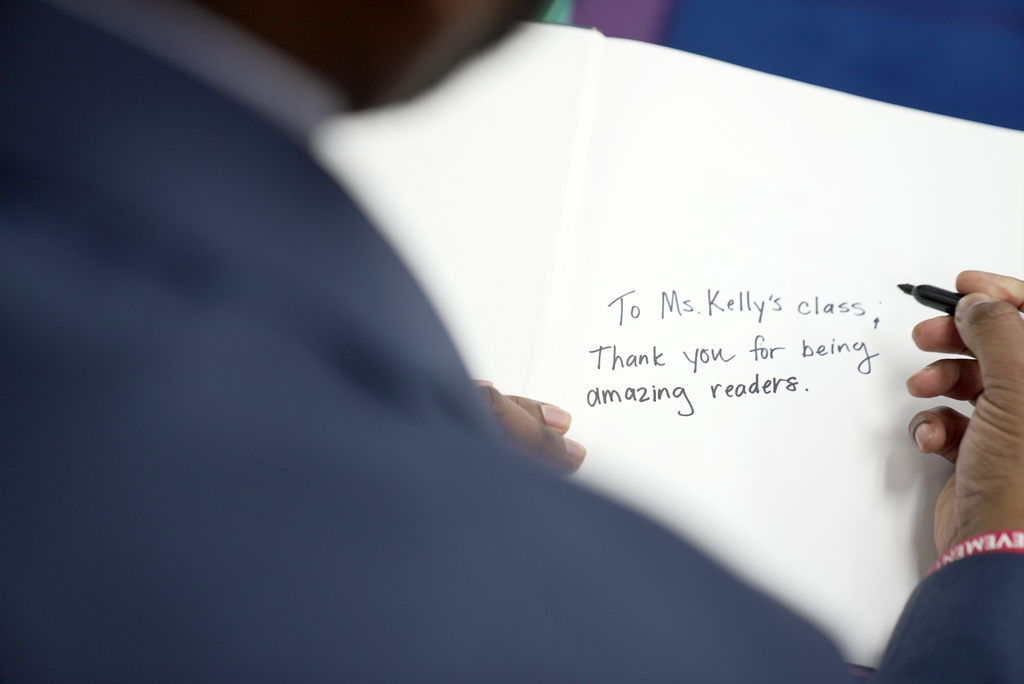 To Ms. Kelly's class;
Thank you for being
amazing readers.
EVEMEN